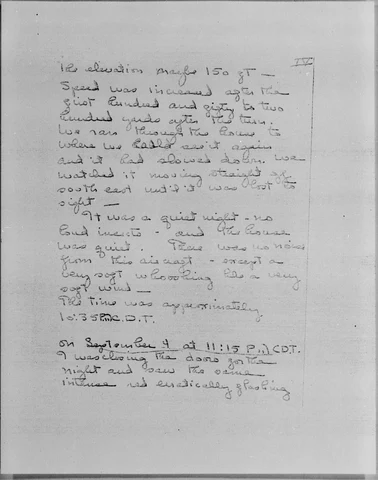 IV
the elevation maybe 150 ft —
Speed was increased after the
first hundred and fifty to two
hundred yards after the turn.
We ran through the house to
where we could see it again
and it had slowed down. We
watched it moving straight off
south east until it was lost to
sight —
It was a quiet night - no
loud insects - and the house
was quiet. There was no noise
from this aircraft - except a
very soft whooshing like a very
soft wind —
The time was approximately
10:35 P.M. C.D.T.
On September 9 at 11:15 P.M. CDT.
I was closing the doors for the
night and saw the same
intense red erratically flashing